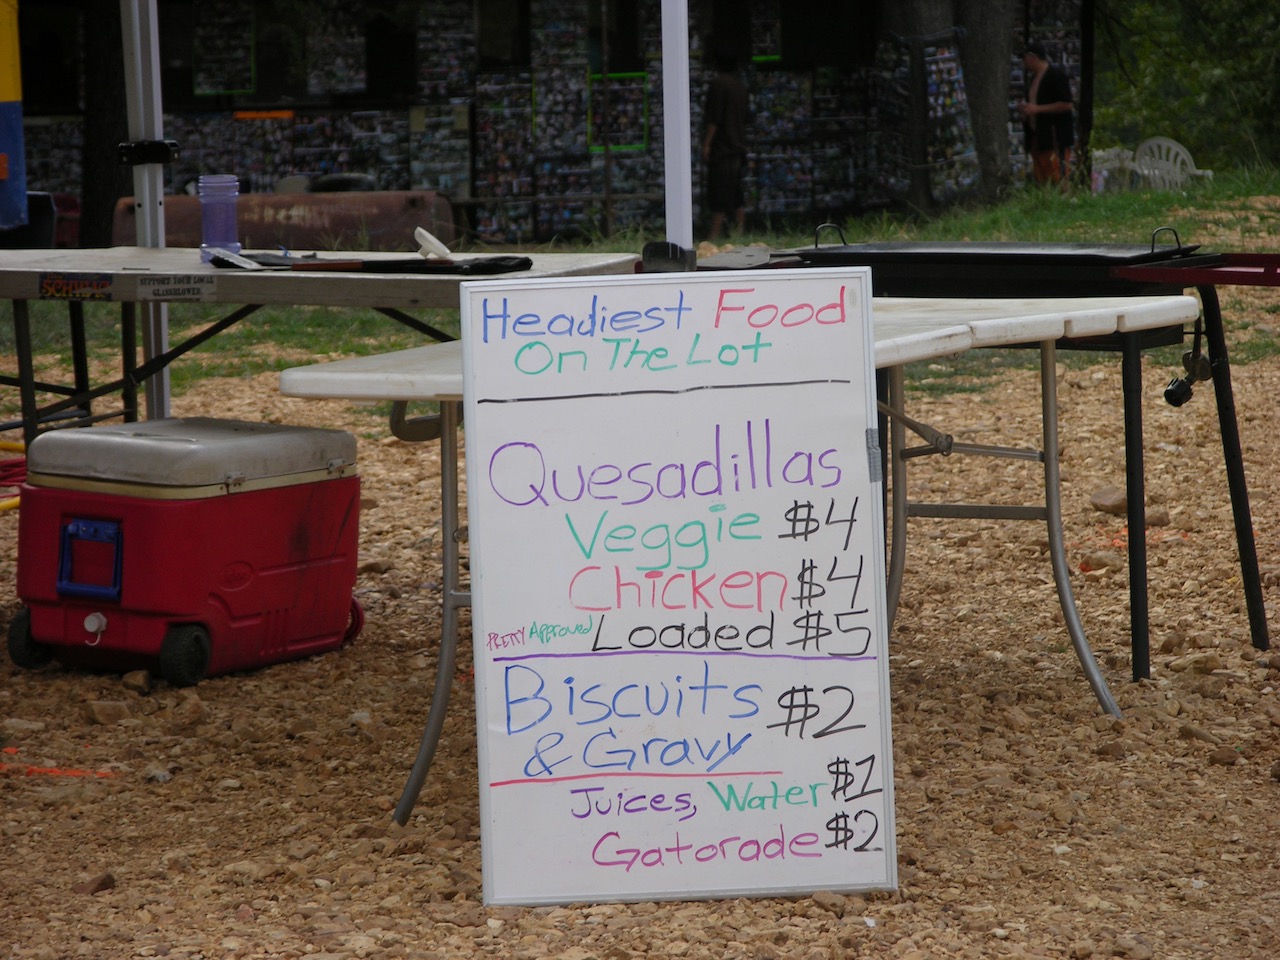 SUPPORT YOUR LOCAL
GLASSBLOWER.
Headiest Food
On The Lot
Quesadillas
Veggie $4
Chicken $4
PRETTY Approved Loaded $5
Biscuits $2
& Gravy
Juices, Water $1
Gatorade $2